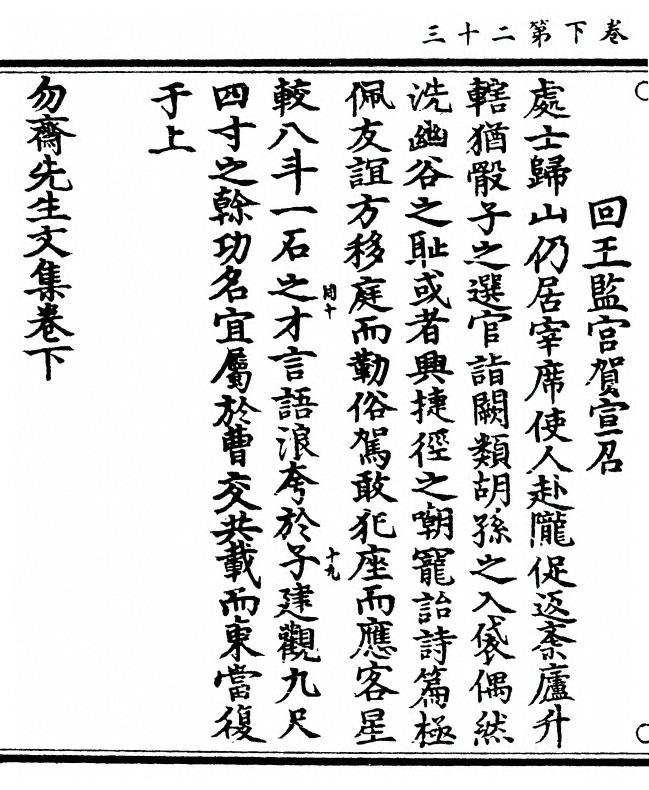 卷下第二十三
回王監宮賀宣召
處士歸山仍居宰席使人赴隴促返紊廬升
轄猶骰子之選官詣闕類胡孫之入袋偶然
洗幽谷之耻或者興捷徑之嘲寵詒詩篇極
佩友誼方移庭而勒俗駕敢犯座而應客星
十九
較八斗一石之才言語浪夸於子建觀九尺
四寸之榦功名宜屬於曹交共載而東當復
于上
勿齋先生文集卷下